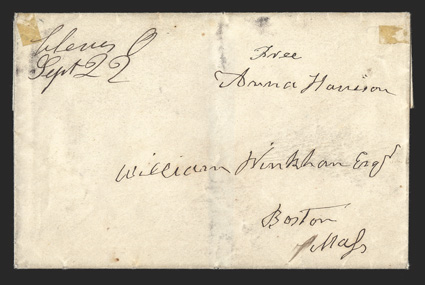 Cleves O
Sept 22
Free
Anna Harrison
William Winkham Esqr
Boston
Mass